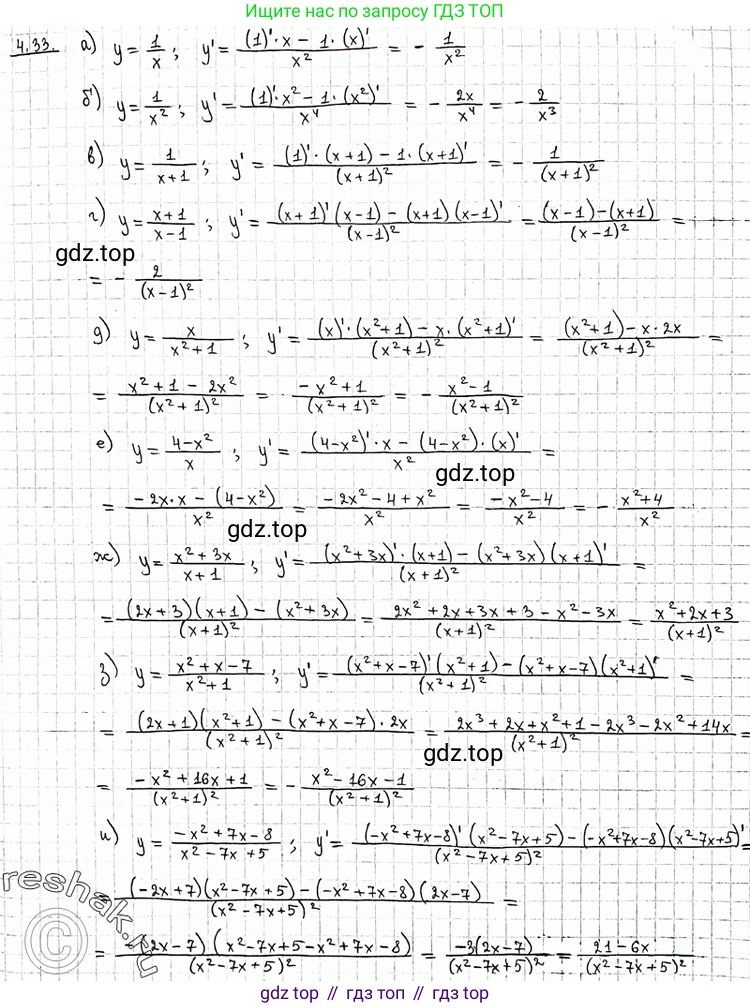 Ищите нас по запросу ГДЗ ТОП
4.33. а) y = 1/x ; y' = ((1)'·x − 1·(x)')/x² = − 1/x²
б) y = 1/x² ; y' = ((1)'·x² − 1·(x²)')/x⁴ = − 2x/x⁴ = − 2/x³
в) y = 1/(x+1) ; y' = ((1)'·(x+1) − 1·(x+1)')/(x+1)² = − 1/(x+1)²
г) y = (x+1)/(x−1) ; y' = ((x+1)'(x−1) − (x+1)(x−1)')/(x−1)² = ((x−1)−(x+1))/(x−1)² =
gdz.top
= − 2/(x−1)²
д) y = x/(x²+1) ; y' = ((x)'·(x²+1) − x·(x²+1)')/(x²+1)² = ((x²+1) − x·2x)/(x²+1)² =
= (x²+1 − 2x²)/(x²+1)² = (−x²+1)/(x²+1)² = − (x²−1)/(x²+1)²
е) y = (4−x²)/x ; y' = ((4−x²)'·x − (4−x²)·(x)')/x² =
gdz.top
= (−2x·x − (4−x²))/x² = (−2x² − 4 + x²)/x² = (−x²−4)/x² = − (x²+4)/x²
gdz.top
ж) y = (x²+3x)/(x+1) ; y' = ((x²+3x)'·(x+1) − (x²+3x)(x+1)')/(x+1)² =
= ((2x+3)(x+1) − (x²+3x))/(x+1)² = (2x²+2x+3x+3−x²−3x)/(x+1)² = (x²+2x+3)/(x+1)²
з) y = (x²+x−7)/(x²+1) ; y' = ((x²+x−7)'(x²+1) − (x²+x−7)(x²+1)')/(x²+1)² =
= ((2x+1)(x²+1) − (x²+x−7)·2x)/(x²+1)² = (2x³+2x+x²+1−2x³−2x²+14x)/(x²+1)² =
gdz.top
= (−x²+16x+1)/(x²+1)² = − (x²−16x−1)/(x²+1)²
и) y = (−x²+7x−8)/(x²−7x+5) ; y' = ((−x²+7x−8)'(x²−7x+5) − (−x²+7x−8)(x²−7x+5)')/(x²−7x+5)² =
= ((−2x+7)(x²−7x+5) − (−x²+7x−8)(2x−7))/(x²−7x+5)² =
= (−(2x−7)(x²−7x+5−x²+7x−8))/(x²−7x+5)² = (−3(2x−7))/(x²−7x+5)² = (21−6x)/(x²−7x+5)²
reshak.ru
©
gdz.top // гдз.топ // gdz.top